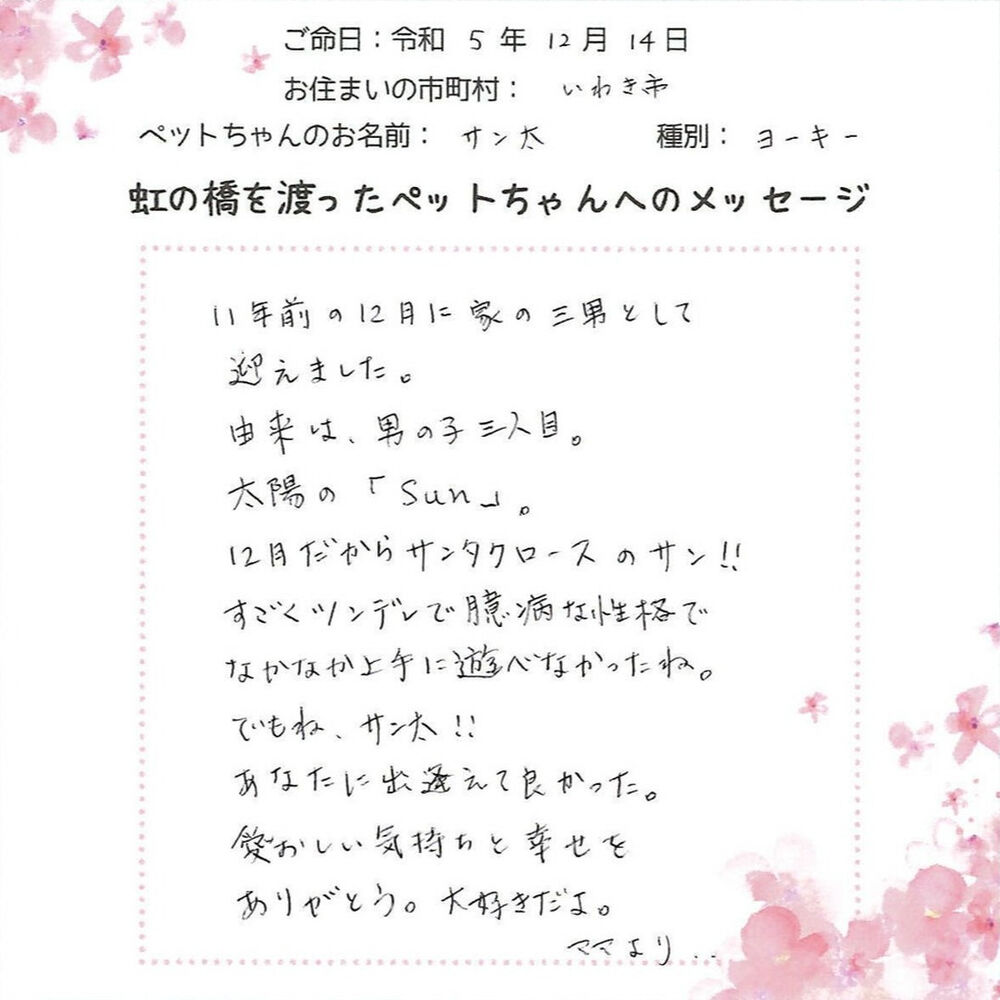 ご命日：令和 5 年 12 月 14日
お住まいの市町村： いわき市
ペットちゃんのお名前： サン太 種別： ヨーキー
虹の橋を渡ったペットちゃんへのメッセージ
11年前の12月に家の三男として
迎えました。
由来は、男の子三人目。
太陽の「Sun」。
12月だからサンタクロースのサン!!
すごくツンデレで臆病な性格で
なかなか上手に遊べなかったね。
でもね、サン太!!
あなたに出逢えて良かった。
愛おしい気持ちと幸せを
ありがとう。大好きだよ。
ママより..